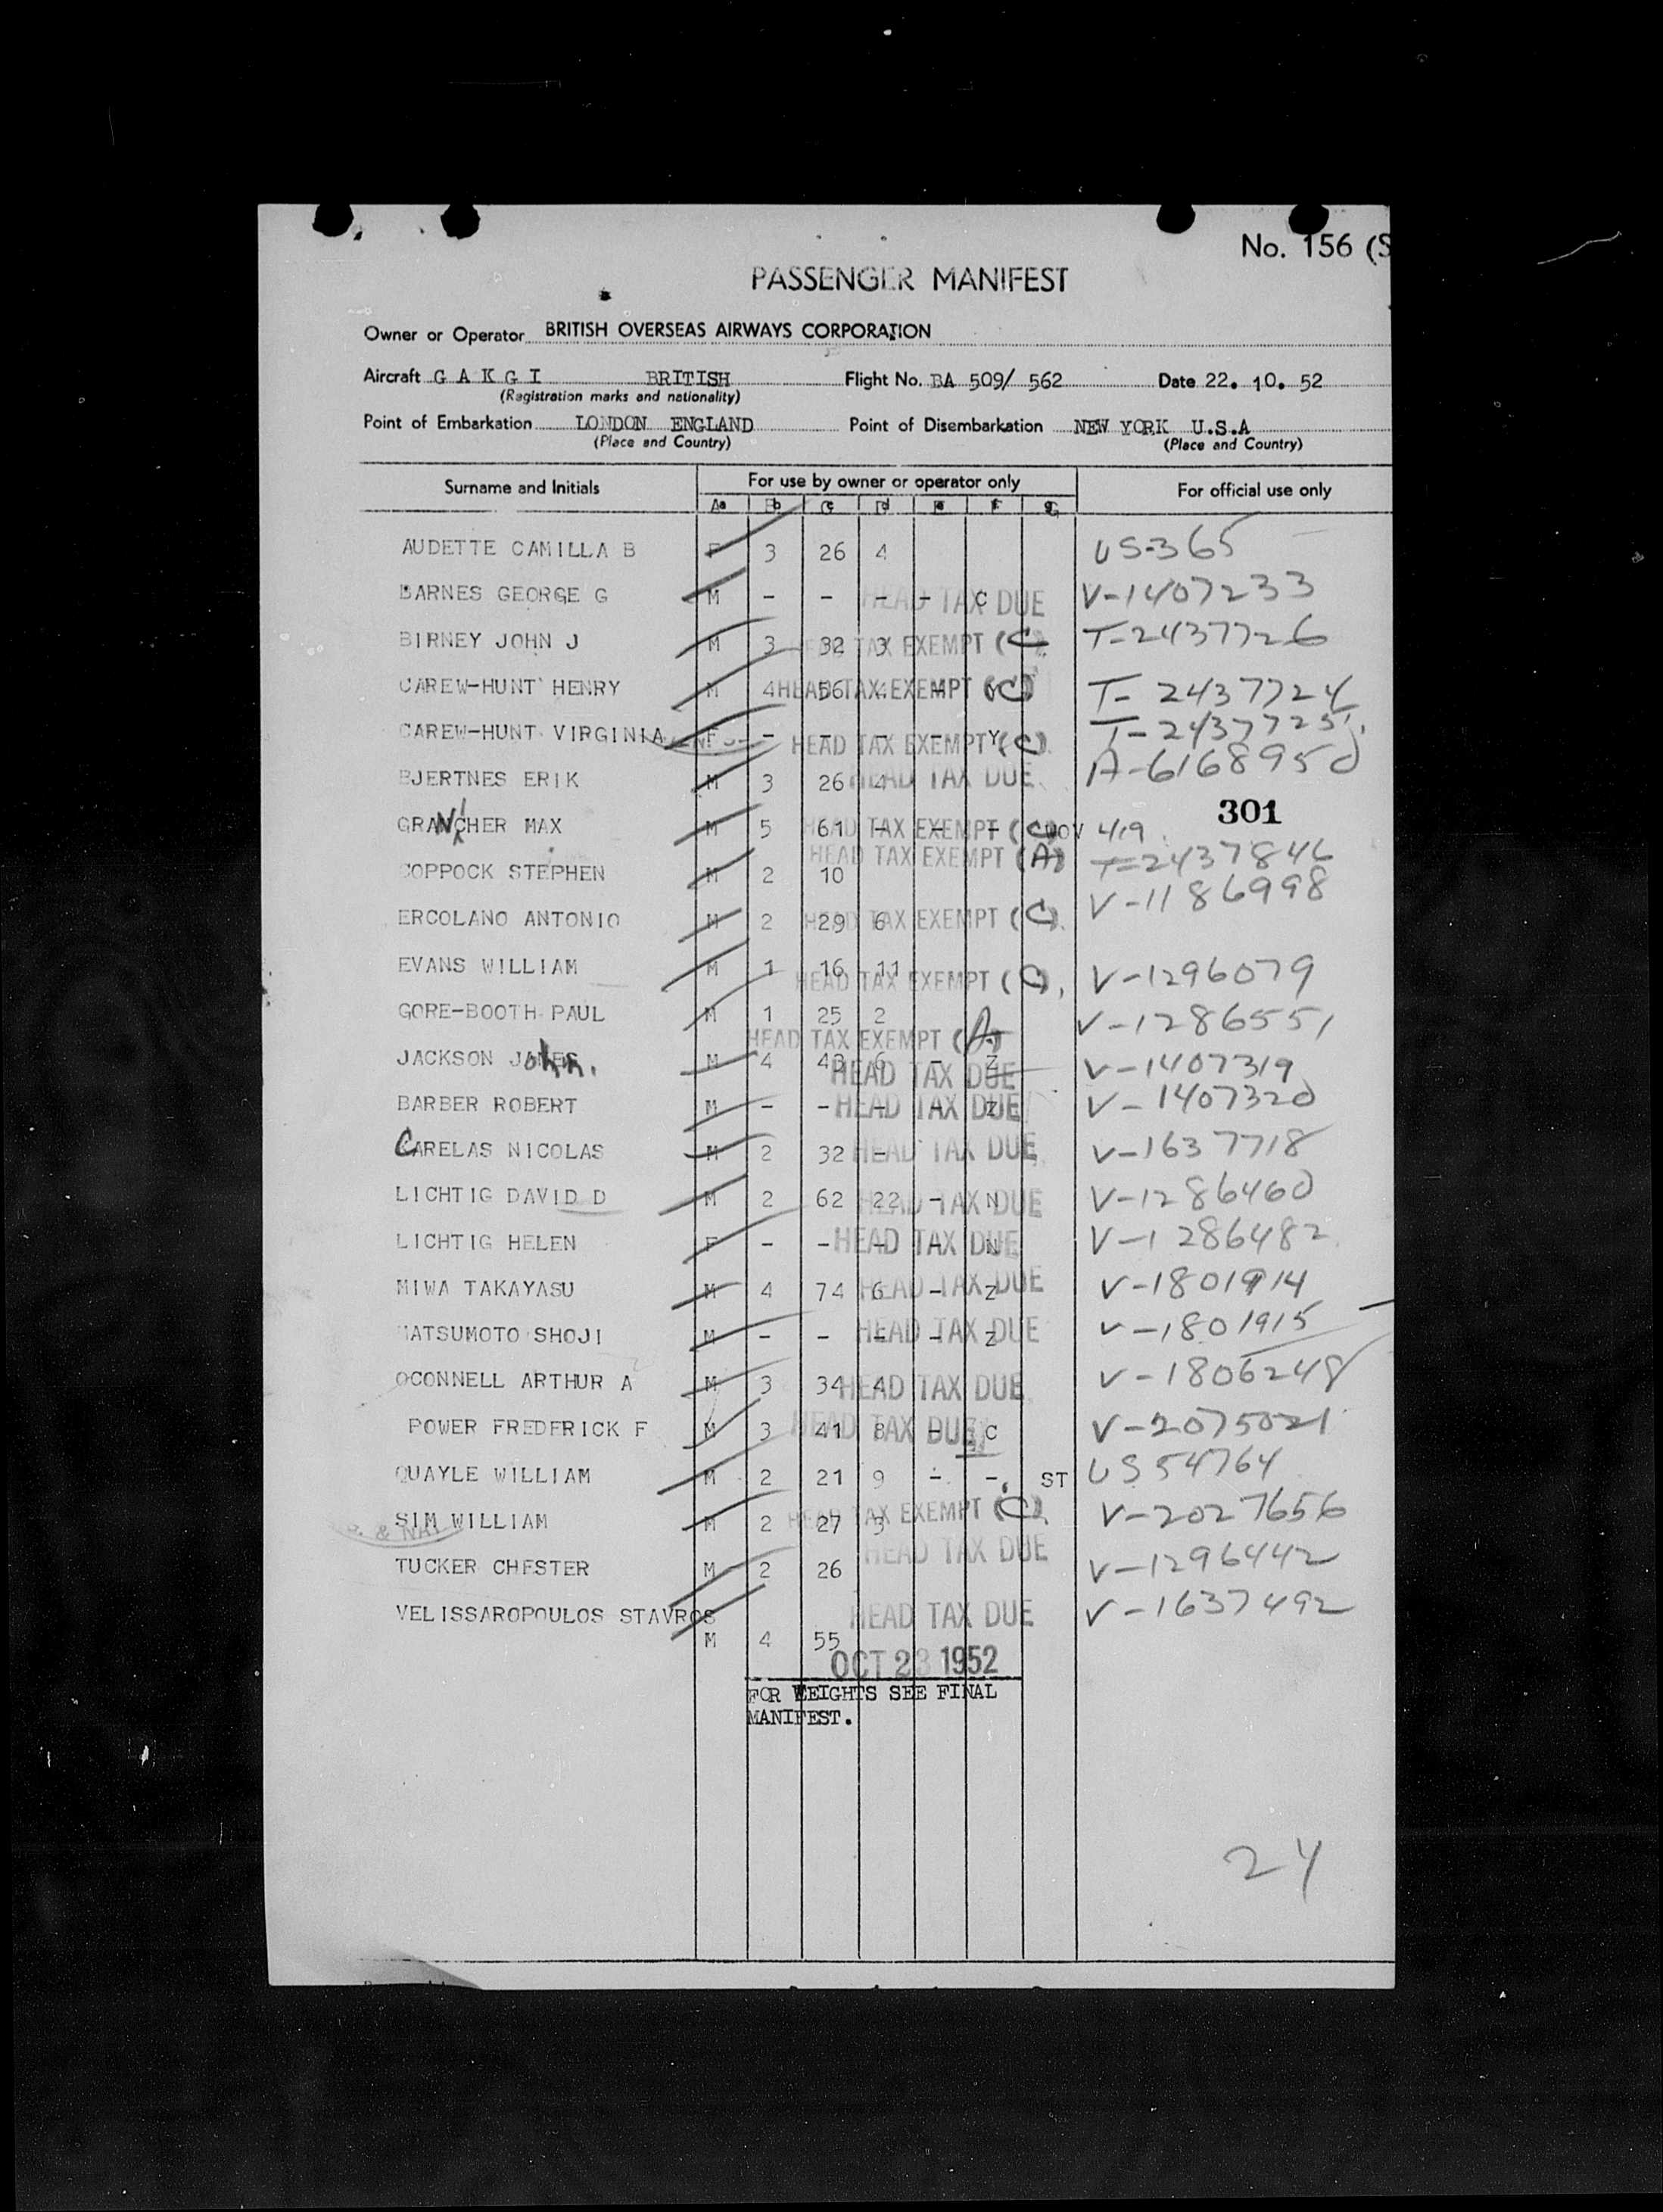 No. 156 (S
PASSENGER MANIFEST
Owner or Operator BRITISH OVERSEAS AIRWAYS CORPORATION
Aircraft G A K G I BRITISH Flight No. BA 509/ 562 Date 22. 10. 52
(Registration marks and nationality)
Point of Embarkation LONDON ENGLAND Point of Disembarkation NEW YORK U.S.A
(Place and Country) (Place and Country)
Surname and Initials For use by owner or operator only For official use only
AUDETTE CAMILLA B F 3 26 4 US-365
BARNES GEORGE G M - - - - C HEAD TAX DUE V-1407233
BIRNEY JOHN J M 3 32 3 HEAD TAX EXEMPT (C) T-2437726
CAREW-HUNT HENRY M 4 56 4 - HEAD TAX EXEMPT (C) T-2437724
CAREW-HUNT VIRGINIA F - - - - Y HEAD TAX EXEMPT (C) T-2437725
BJERTNES ERIK M 3 26 4 HEAD TAX DUE A-6168950
301
GRANCHER MAX M 5 61 - - - HEAD TAX EXEMPT (C) NOV 419
COPPOCK STEPHEN M 2 10 HEAD TAX EXEMPT (A) T-2437846
ERCOLANO ANTONIO M 2 29 6 HEAD TAX EXEMPT (C) V-1186998
EVANS WILLIAM M 1 16 11 HEAD TAX EXEMPT (C) V-1296079
GORE-BOOTH PAUL M 1 25 2 HEAD TAX EXEMPT (A) V-1286551
JACKSON John. M 4 43 6 - Z HEAD TAX DUE V-1407319
BARBER ROBERT M - - - - Z HEAD TAX DUE V-1407320
CARELAS NICOLAS M 2 32 - HEAD TAX DUE V-1637718
LICHTIG DAVID D M 2 62 22 - N HEAD TAX DUE V-1286460
LICHTIG HELEN F - - - - N HEAD TAX DUE V-1286482
MIWA TAKAYASU M 4 74 6 - Z HEAD TAX DUE V-1801914
MATSUMOTO SHOJI M - - - - Z HEAD TAX DUE V-1801915
OCONNELL ARTHUR A M 3 34 4 HEAD TAX DUE V-1806248
POWER FREDERICK F M 3 41 8 - C HEAD TAX DUE V-2075021
QUAYLE WILLIAM M 2 21 9 - - ST US 54764
SIM WILLIAM M 2 27 3 HEAD TAX EXEMPT (C) V-2027656
TUCKER CHESTER M 2 26 HEAD TAX DUE V-1296442
VELISSAROPOULOS STAVROS HEAD TAX DUE V-1637492
M 4 55
OCT 23 1952
FOR WEIGHTS SEE FINAL
MANIFEST.
24